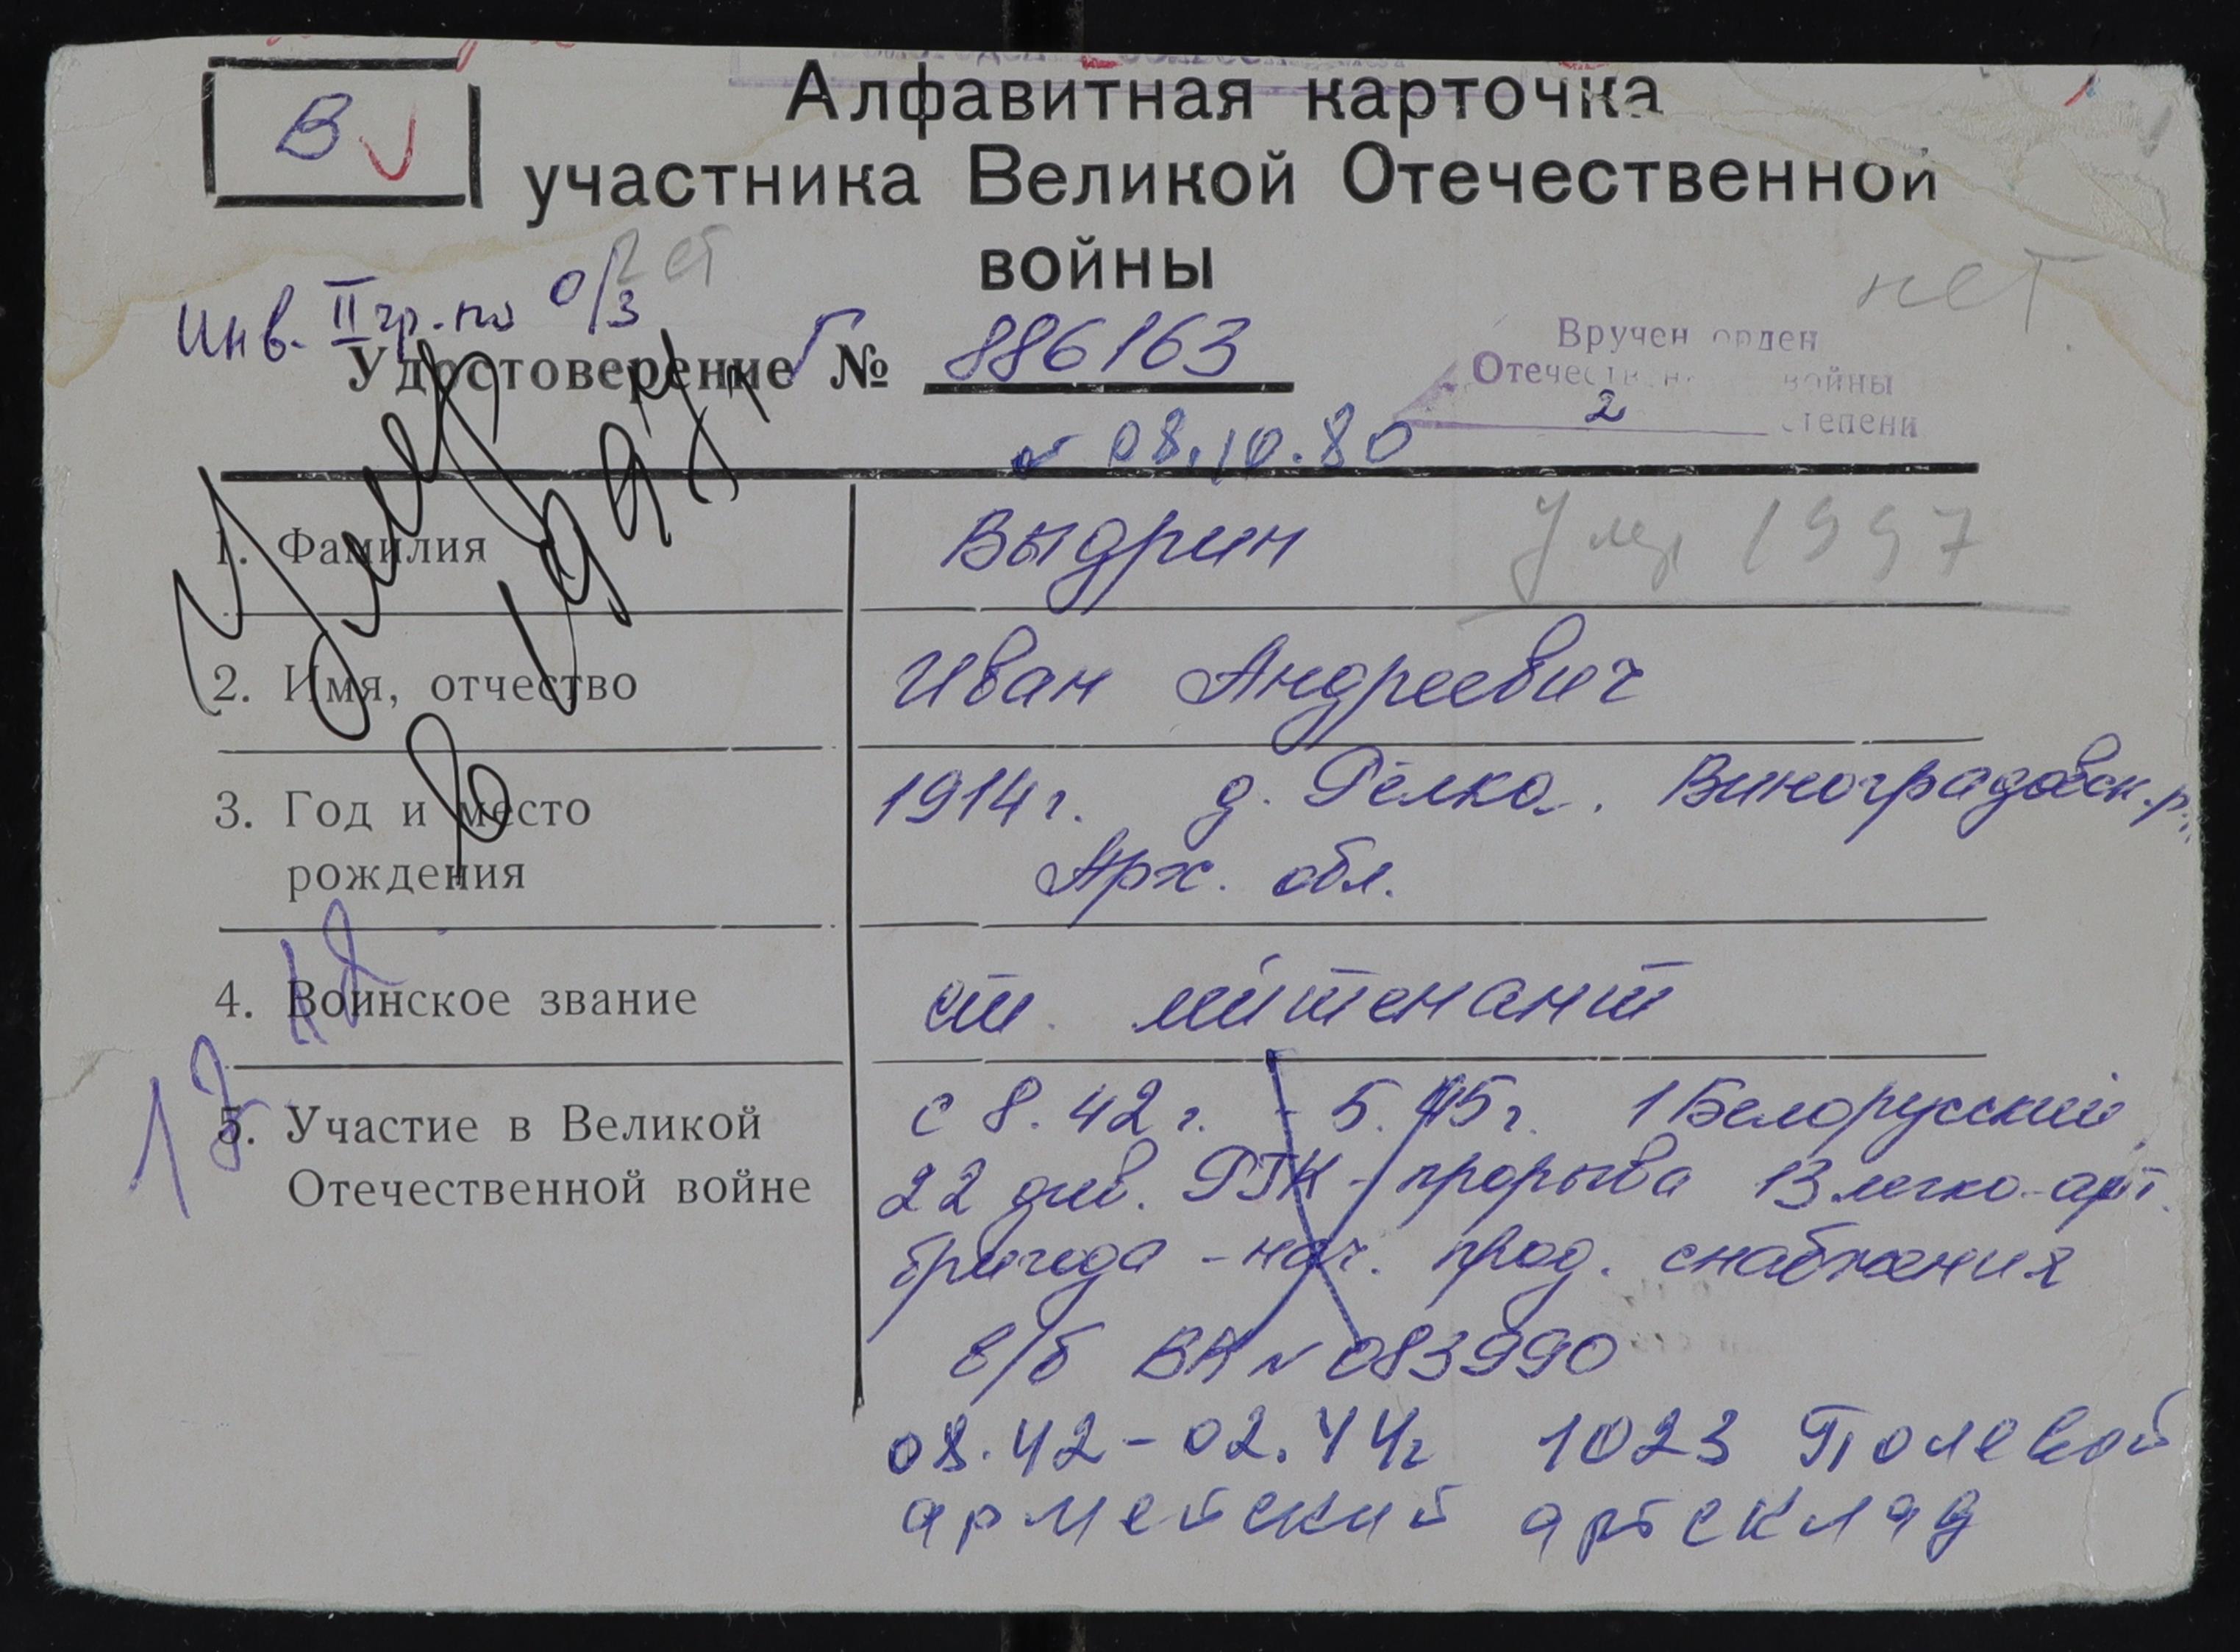 В
Алфавитная карточка
участника Великой Отечественной
войны
нет
Инв. II гр. по о/з
Удостоверение Г № 886163
Вручен орден
Отечественной войны
2 степени
08.10.80
1. Фамилия
Выдрин
Умер 1997
Умер
1997г
2. Имя, отчество
Иван Андреевич
3. Год и место
рождения
1914г. д. Виноградовск. р.,
Арх. обл.
4. Воинское звание
ст. лейтенант
5. Участие в Великой
Отечественной войне
с 8.42 г. - 5.45г. 1 Белорусский,
22 див. РГК - прорыва 13 легко-арт.
бригада - нач. прод. снабжения
в/б ВА № 083990
08.42-02.44г 1023 Полевой
армейский артсклад